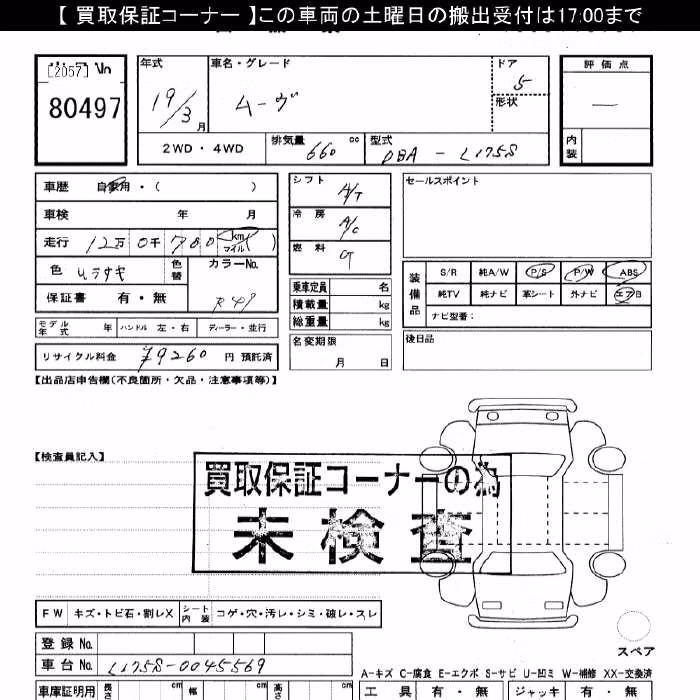 【 買取保証コーナー 】この車両の土曜日の搬出受付は17:00まで
[2057] No
80497
年式
19/3 月
車名・グレード
ムーヴ
ドア
5
形状
評価点
—
内装
2WD・4WD
排気量 660 cc
型式 DBA - L175S
車歴 自家用・( )
車検 年 月
走行 12万 0千 700 km マイル( )
色 ムラサキ
色替
カラーNo.
保証書 有・無
シフト A/T
冷房 A/C
燃料
乗車定員 名
積載量 kg
総重量 kg
名変期限
月 日
セールスポイント
装備品
S/R 純A/W P/S P/W ABS
純TV 純ナビ 革シート 外ナビ エアB
ナビ型番:
後日品
モデル年式 年 ハンドル 左・右 ディーラー・並行
リサイクル料金 ¥9260 円 預託済
【出品店申告欄(不良箇所・欠品・注意事項等)】
【検査員記入】
買取保証コーナーの為
未検査
FW キズ・トビ石・割レX シート内装 コゲ・穴・汚レ・シミ・破レ・スレ
登録No.
車台No. L175S-0045569
スペア
A-キズ C-腐食 E-エクボ S-サビ U-凹ミ W-補修 XX-交換済
車庫証明用 長さ cm 幅 cm 高さ cm
工具 有・無 ジャッキ 有・無